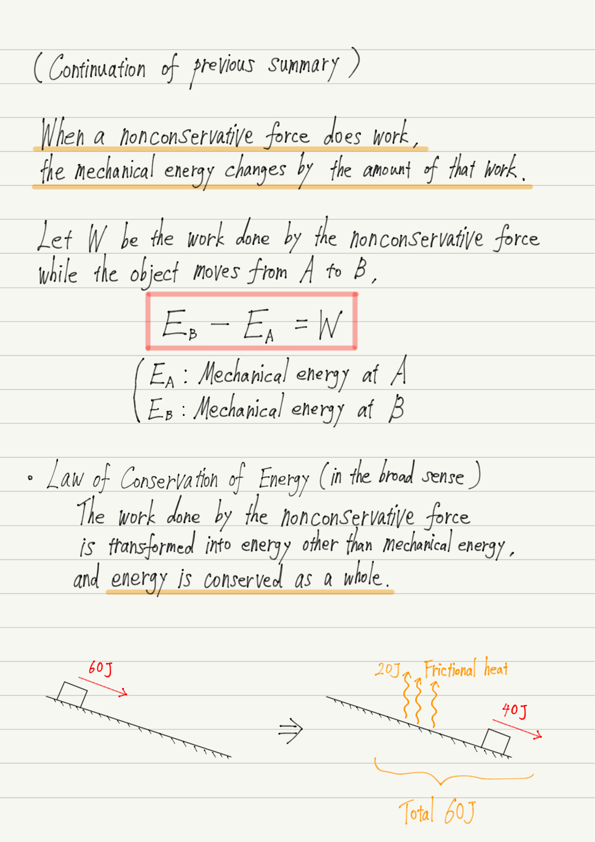 (Continuation of previous summary)
When a nonconservative force does work,
the mechanical energy changes by the amount of that work.
Let W be the work done by the nonconservative force
while the object moves from A to B,
E_B − E_A = W
E_A : Mechanical energy at A
E_B : Mechanical energy at B
• Law of Conservation of Energy (in the broad sense)
The work done by the nonconservative force
is transformed into energy other than mechanical energy,
and energy is conserved as a whole.
60J
⇒
20J Frictional heat
40J
Total 60J